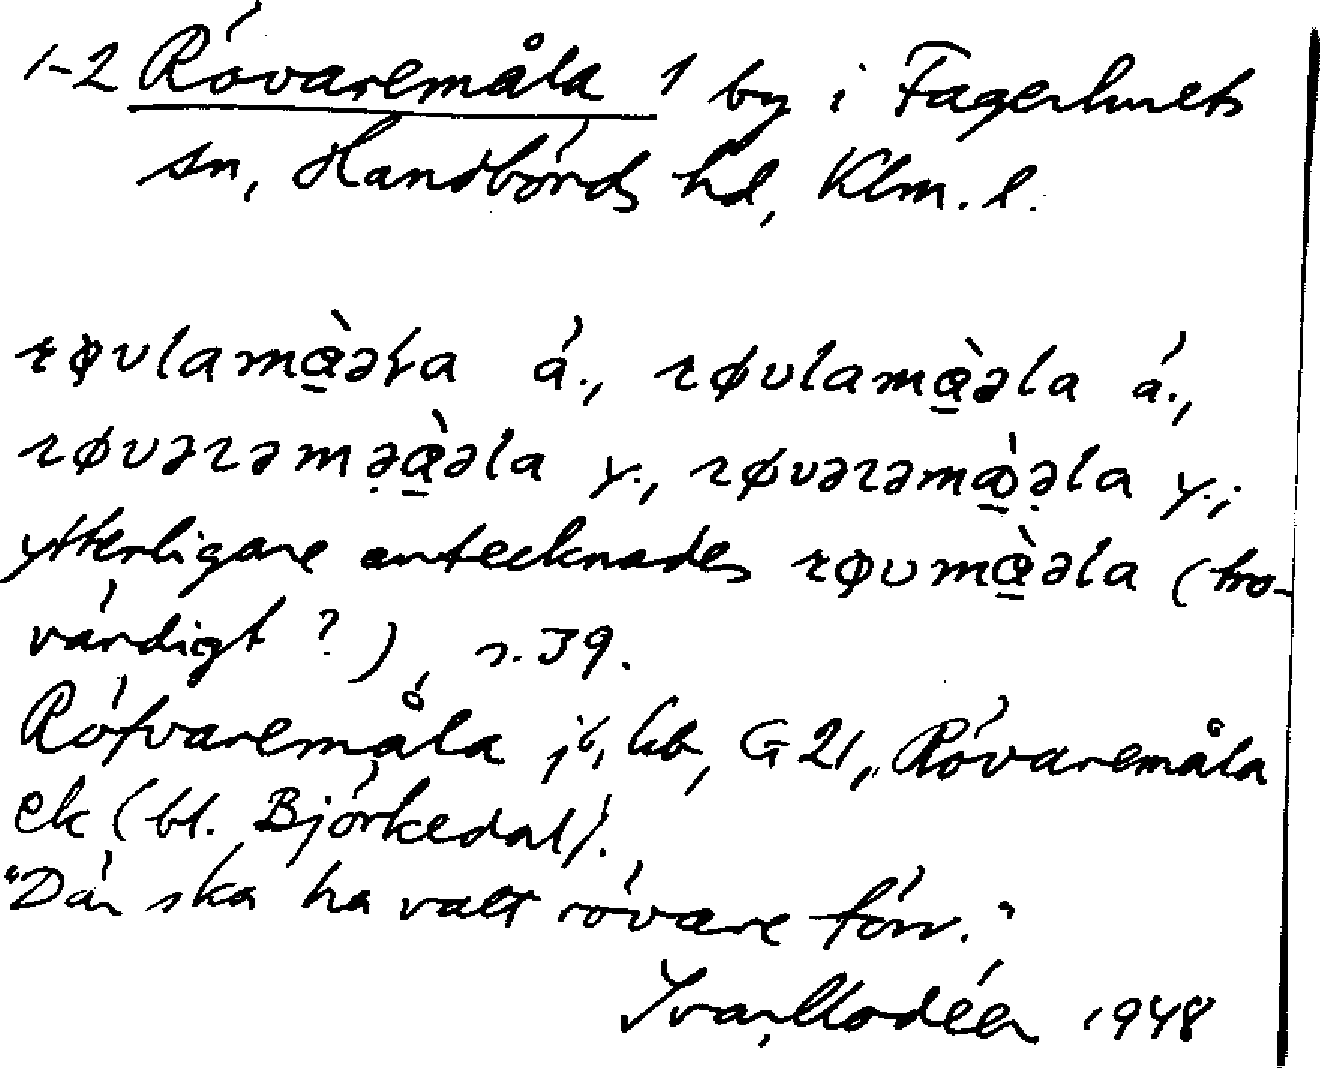 1-2 Rövaremåla 1 by i Fagerhults
sn, Handbörds hd, Klm. l.
røvlamàəɫa ä., røvlamàəla ä.,
røvərəməàəla y., røvərəmàəla y.;
ytterligare antecknades røvmàəla (tro-
värdigt?), s. 39.
Röfvaremåla jb, kb, G 21, Rövaremåla
ek (bl. Björkedal).
"Där ska ha vatt rövare förr."
Ivar Modéer 1948